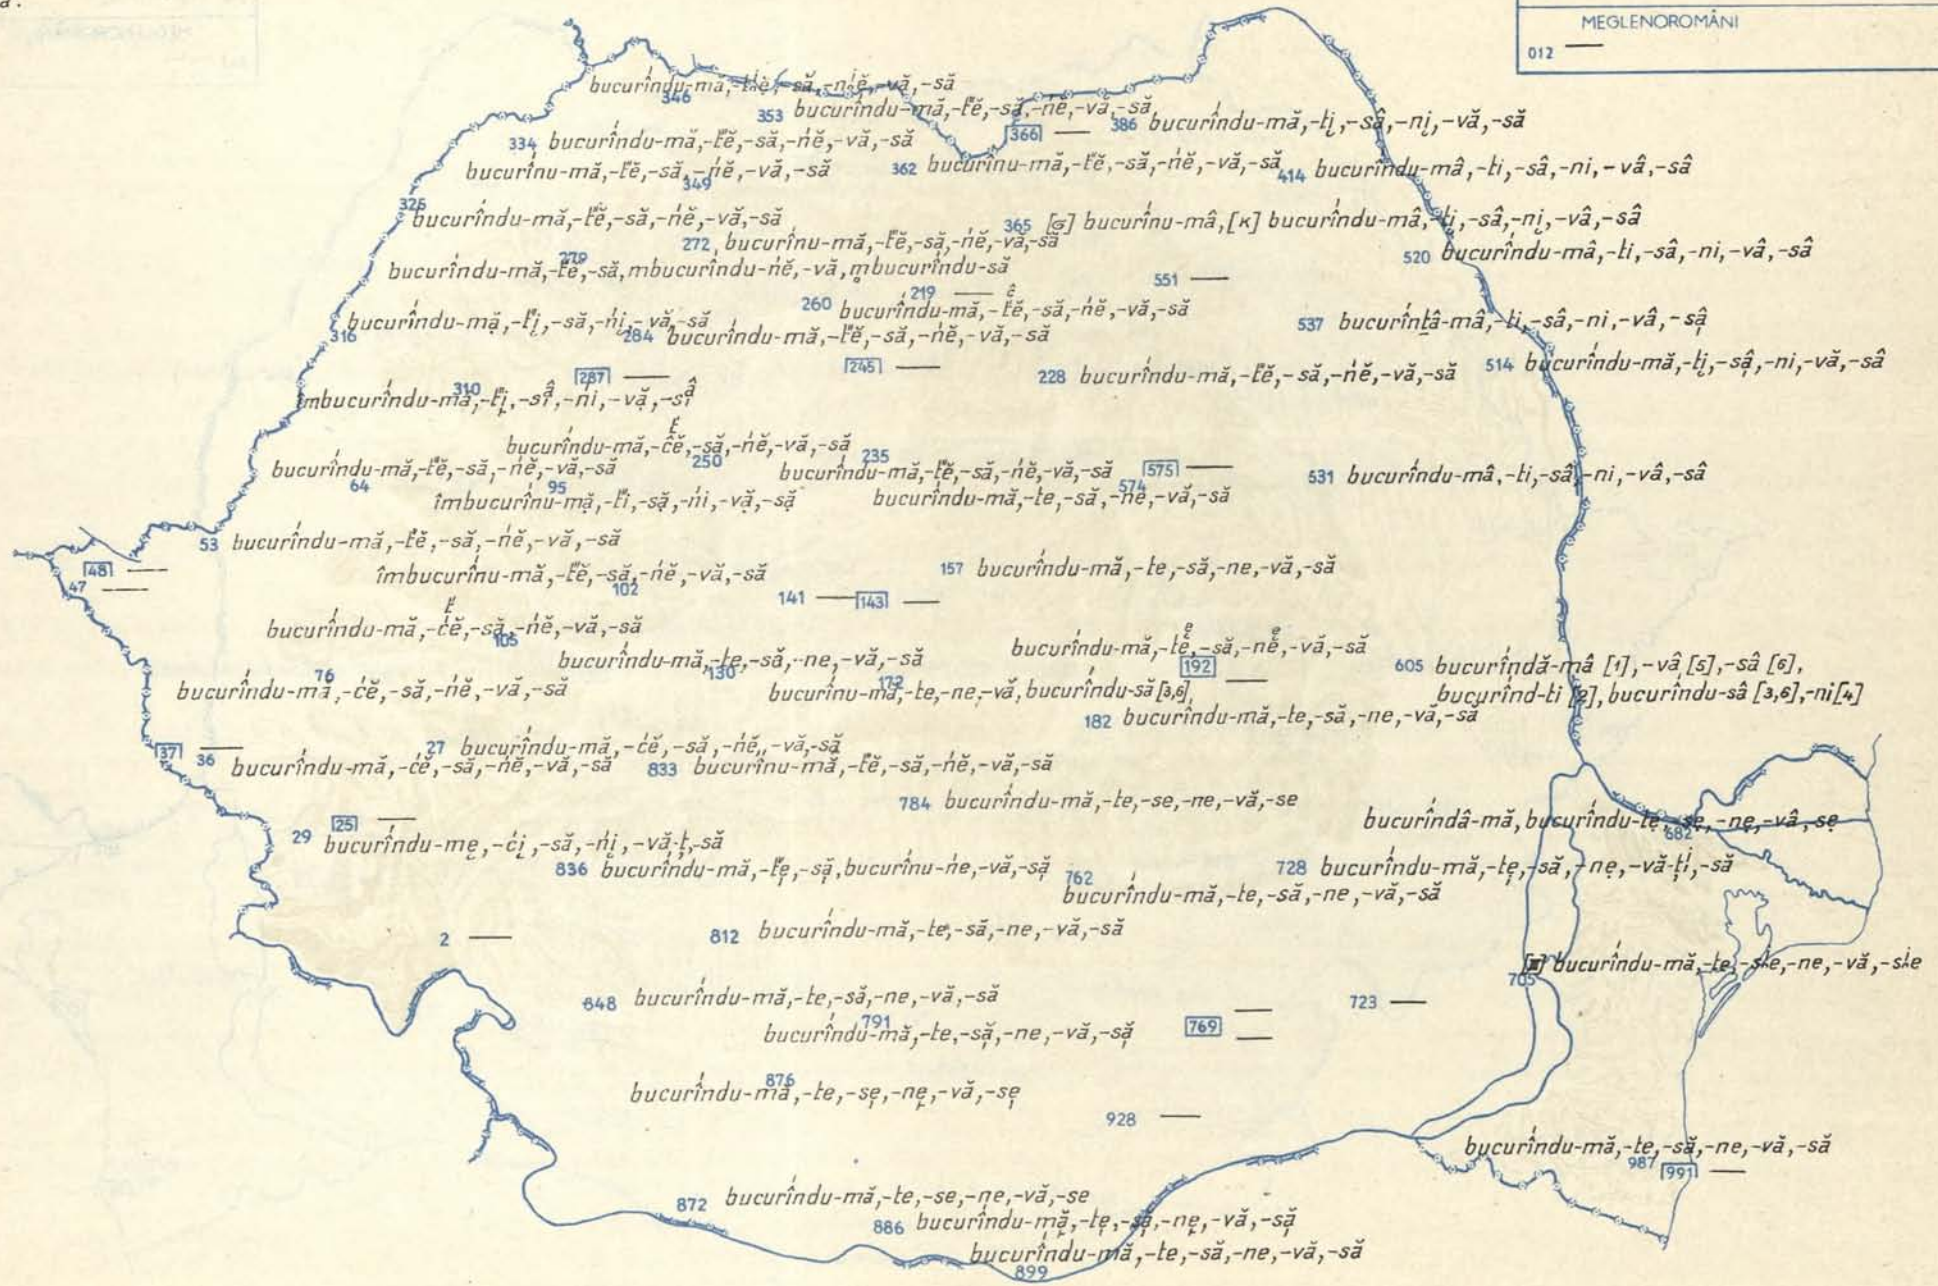 a.
MEGLENOROMÂNI
012 —
bucurîndu-mă,-t́ĕ,-să,-ńĕ,-vă,-să
346
353 bucurîndu-mă,-t́ĕ,-să,-ńĕ,-vă,-să
366 — 386 bucurîndu-mă,-ti̯,-sâ,-ni̯,-vă,-să
334 bucurîndu-mă,-t́ĕ,-să,-ńĕ,-vă,-să
bucurînu-mă,-t́ĕ,-să,-ńĕ,-vă,-să
349
362 bucurînu-mă,-t́ĕ,-să,-ńĕ,-vă,-să
414 bucurîndu-mâ,-ti,-sâ,-ni,-vâ,-sâ
325 bucurîndu-mă,-t́ĕ,-să,-ńĕ,-vă,-să
365 [G] bucurînu-mâ,[K] bucurîndu-mâ,-ti̯,-sâ,-ni̯,-vâ,-sâ
272 bucurînu-mă,-t́ĕ,-să,-ńĕ,-vă,-să
520 bucurîndu-mâ,-ti,-sâ,-ni,-vâ,-sâ
279
bucurîndu-mă,-t́ĕ,-să,mbucurîndu-ńĕ,-vă,mbucurîndu-să
551 —
219 —
260 bucurîndu-mă,-t́ĕ,-să,-ńĕ,-vă,-să
bucurîndu-mặ,-t́i̯,-să,-ńi̯,-vă,-să
316
284 bucurîndu-mă,-t́ĕ,-să,-ńĕ,-vă,-să
537 bucurînṯâ-mâ,-ti,-sâ,-ni,-vâ,-sậ
287 — 245 —
228 bucurîndu-mă,-t́ĕ,-să,-ńĕ,-vă,-să
514 bucurîndu-mă,-ti̯,-sậ,-ni,-vă,-sâ
310
îmbucurîndu-mă,-t́i̯,-sî,-ńi,-vặ,-sî
bucurîndu-mă,-ćĕ,-să,-ńĕ,-vă,-să
250
235
bucurîndu-mă,-t́ĕ,-să,-ńĕ,-vă,-să
64
bucurîndu-mă,-t́ĕ,-să,-ńĕ,-vă,-să
575 —
531 bucurîndu-mâ,-ti,-sâ,-ni,-vâ,-sâ
95
îmbucurînu-mặ,-t́i,-sặ,-ńi,-vặ,-sặ
574
bucurîndu-mă,-te,-să,-ne,-vă,-să
53 bucurîndu-mă,-t́ĕ,-să,-ńĕ,-vă,-să
48 —
47 —
îmbucurînu-mă,-t́ĕ,-să,-ńĕ,-vă,-să
102
157 bucurîndu-mă,-te,-să,-ne,-vă,-să
141 — 143 —
bucurîndu-mă,-ćĕ,-să,-ńĕ,-vă,-să
105
bucurîndu-mă,-te,-să,-ne,-vă,-să
130
bucurîndu-mă,-t́ĕ,-să,-nĕ,-vă,-să
192 —
605 bucurîndă-mâ [1],-vâ [5],-sâ [6],
bucurînd-ti [2],bucurîndu-sâ [3,6],-ni[4]
76
bucurîndu-mă,-ćĕ,-să,-ńĕ,-vă,-să
172
bucurînu-mă,-te,-ne,-vă,bucurîndu-să[3,6]
182 bucurîndu-mă,-te,-să,-ne,-vă,-să
37 — 36 bucurîndu-mă,-ćĕ,-să,-ńĕ,-vă,-să
27 bucurîndu-mă,-ćĕ,-să,-ńĕ,-vă,-să
833 bucurînu-mă,-t́ĕ,-să,-ńĕ,-vă,-să
784 bucurîndu-mă,-te,-se,-ne,-vă,-se
bucurîndâ-mă,bucurîndu-tẹ,-sẹ,-nẹ,-vâ,sẹ
682
25 —
29 bucurîndu-mẹ,-ći̯,-să,-ńi̯,-vă-ț,-să
836 bucurîndu-mă,-t́ẹ,-sặ,bucurînu-ńe,-vă,-sặ
762
bucurîndu-mă,-te,-să,-ne,-vă,-să
728 bucurîndu-mă,-tẹ,-să,-nẹ,-vă-ți,-să
2 —
812 bucurîndu-mă,-te,-să,-ne,-vă,-să
bucurîndu-mă,-te,-sie,-ne,-vă,-sie
705
848 bucurîndu-mă,-te,-să,-ne,-vă,-să
723 —
791
bucurîndu-mă,-te,-sặ,-ne,-vă,-sặ
769 —
—
876
bucurîndu-mă,-te,-sẹ,-nẹ,-vă,-sẹ
928 —
bucurîndu-mă,-te,-să,-ne,-vă,-să
987 991 —
872 bucurîndu-mă,-te,-se,-ne,-vă,-se
886 bucurîndu-mặ,-tẹ,-sặ,-nẹ,-vă,-sặ
bucurîndu-mă,-te,-să,-ne,-vă,-să
899